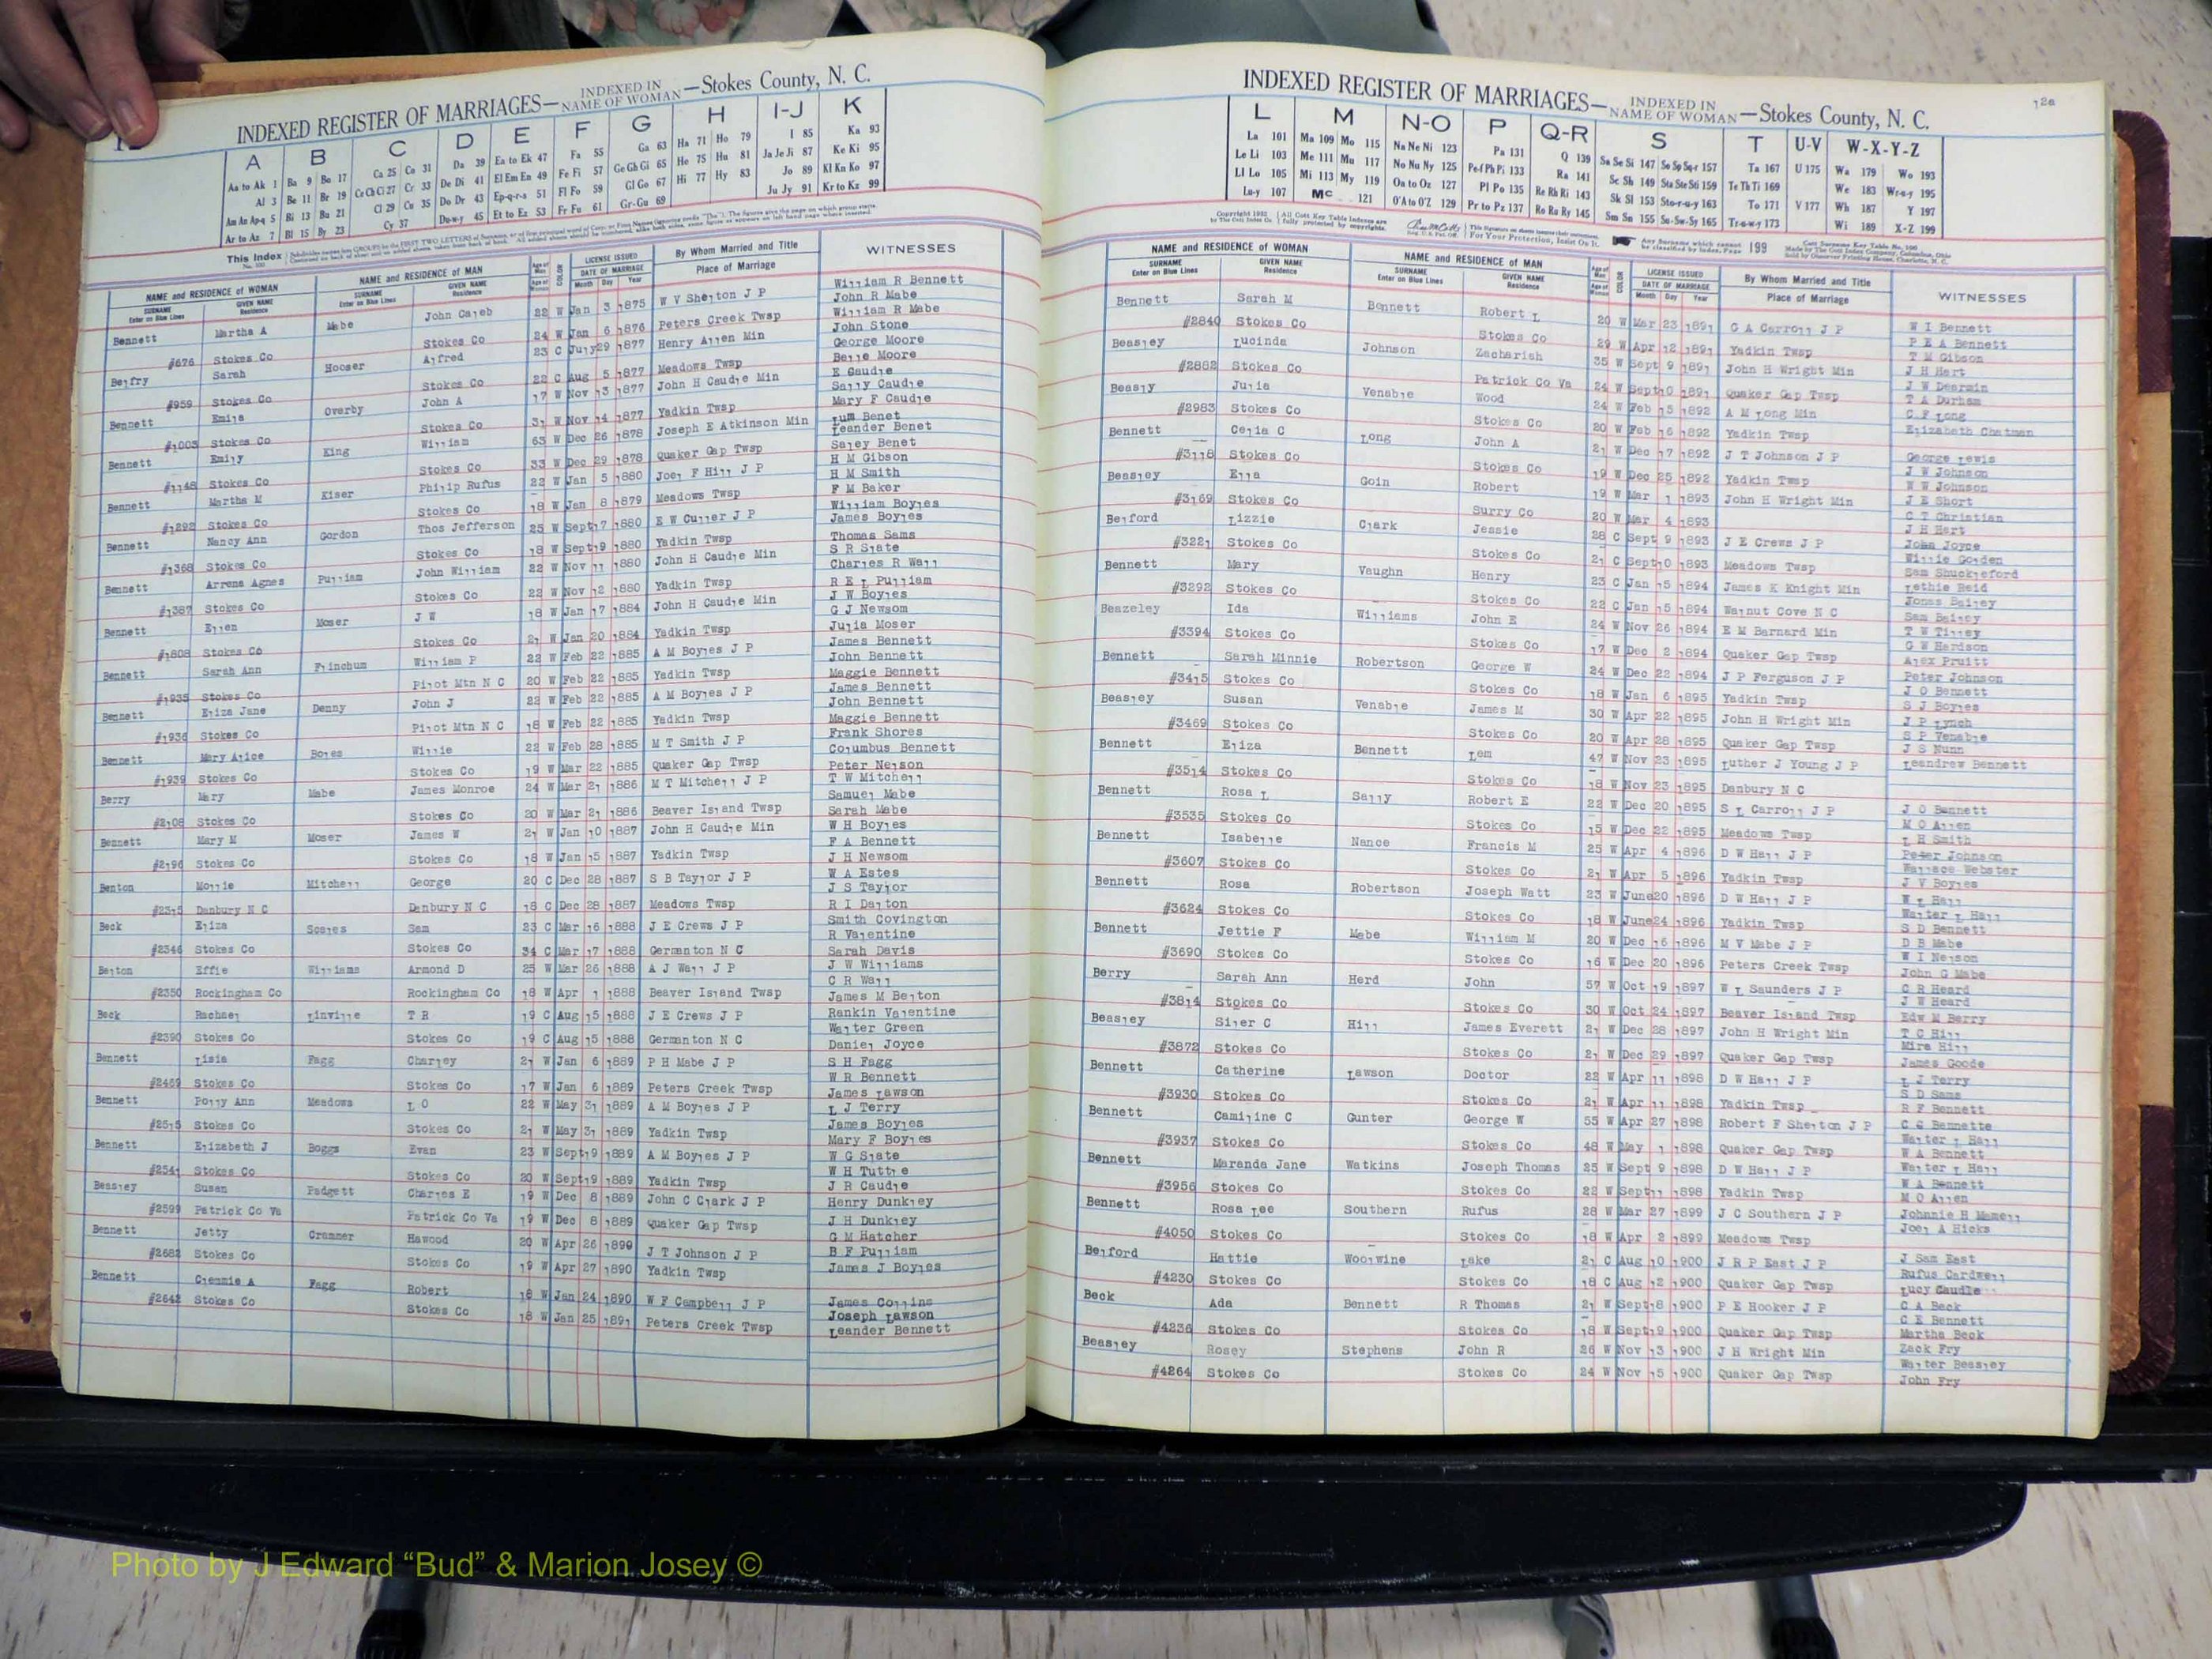 INDEXED REGISTER OF MARRIAGES—INDEXED IN NAME OF WOMAN—Stokes County, N. C.
A B C D E F G H I-J K
Aa to Ak 1 Ba 9 Bo 17 Ca 25 Co 31 Da 39 Ea to Ek 47 Fa 55 Ga 63 Ha 71 Ho 79 I 85 Ka 93
Al 3 Be 11 Br 19 Ce Ch Ci 27 Cr 33 De Di 41 El Em En 49 Fe Fi 57 Ge Gh Gi 65 He 75 Hu 81 Ja Je Ji 87 Ke Ki 95
Am An Ap-q 5 Bi 13 Bu 21 Cl 29 Cu 35 Do Dr 43 Ep-q-r-s 51 Fl Fo 59 Gl Go 67 Hi 77 Hy 83 Jo 89 Kl Kn Ko 97
Ar to Az 7 Bl 15 By 23 Cy 37 Du-w-y 45 Et to Ez 53 Fr Fu 61 Gr-Gu 69 Ju Jy 91 Kr to Kz 99
This Index
NAME and RESIDENCE of WOMAN NAME and RESIDENCE of MAN LICENSE ISSUED By Whom Married and Title WITNESSES
SURNAME Enter on Blue Lines GIVEN NAME Residence SURNAME Enter on Blue Lines GIVEN NAME Residence Age of Man Age of Woman COLOR DATE OF MARRIAGE Month Day Year Place of Marriage
William R Bennett
Bennett Martha A Mabe John Caleb 22 W Jan 3 1875 W V Shelton J P John R Mabe
William R Mabe
#676 Stokes Co Stokes Co 24 W Jan 6 1876 Peters Creek Twsp John Stone
Belfry Sarah Hooser Alfred 23 C July 29 1877 Henry Allen Min George Moore
Belle Moore
#959 Stokes Co Stokes Co 22 C Aug 5 1877 Meadows Twsp E Caudle
Bennett Emila Overby John A 17 W Nov 13 1877 John H Caudle Min Sally Caudle
Mary F Caudle
#1003 Stokes Co Stokes Co 31 W Nov 14 1877 Yadkin Twsp Lum Benet
Bennett Emily King William 63 W Dec 26 1878 Joseph E Atkinson Min Leander Benet
Saley Benet
#1148 Stokes Co Stokes Co 33 W Dec 29 1878 Quaker Gap Twsp H M Gibson
Bennett Martha M Kiser Philip Rufus 22 W Jan 5 1880 Joel F Hill J P H M Smith
F M Baker
#1292 Stokes Co Stokes Co 18 W Jan 8 1879 Meadows Twsp William Boyles
Bennett Nancy Ann Gordon Thos Jefferson 25 W Sept 17 1880 E W Culler J P James Boyles
Thomas Sams
#1368 Stokes Co Stokes Co 18 W Sept 19 1880 Yadkin Twsp S R Slate
Bennett Arrena Agnes Pulliam John William 22 W Nov 11 1880 John H Caudle Min Charles R Wall
R E L Pulliam
#1387 Stokes Co Stokes Co 22 W Nov 12 1880 Yadkin Twsp J W Boyles
Bennett Ellen Moser J W 18 W Jan 17 1884 John H Caudle Min G J Newsom
Julia Moser
#1808 Stokes Co Stokes Co 21 W Jan 20 1884 Yadkin Twsp James Bennett
Bennett Sarah Ann Flinchum William P 22 W Feb 22 1885 A M Boyles J P John Bennett
Maggie Bennett
#1935 Stokes Co Pilot Mtn N C 20 W Feb 22 1885 Yadkin Twsp James Bennett
Bennett Eliza Jane Denny John J 22 W Feb 22 1885 A M Boyles J P John Bennett
Maggie Bennett
#1936 Stokes Co Pilot Mtn N C 18 W Feb 22 1885 Yadkin Twsp Frank Shores
Bennett Mary Alice Boles Willie 22 W Feb 28 1885 M T Smith J P Columbus Bennett
Peter Nelson
#1939 Stokes Co Stokes Co 19 W Mar 22 1885 Quaker Gap Twsp T W Mitchell
Berry Mary Mabe James Monroe 24 W Mar 21 1886 M T Mitchell J P Samuel Mabe
Sarah Mabe
#2108 Stokes Co Stokes Co 20 W Mar 21 1886 Beaver Island Twsp W H Boyles
Bennett Mary M Moser James W 21 W Jan 10 1887 John H Caudle Min F A Bennett
J H Newsom
#2196 Stokes Co Stokes Co 18 W Jan 15 1887 Yadkin Twsp W A Estes
Benton Mollie Mitchell George 20 C Dec 28 1887 S B Taylor J P J S Taylor
R I Dalton
#2315 Danbury N C Danbury N C 18 C Dec 28 1887 Meadows Twsp Smith Covington
Beck Eliza Scales Sam 23 C Mar 16 1888 J E Crews J P R Valentine
Sarah Davis
#2346 Stokes Co Stokes Co 34 C Mar 17 1888 Germanton N C J W Williams
Belton Effie Williams Armond D 25 W Mar 26 1888 A J Wall J P C R Wall
James M Belton
#2350 Rockingham Co Rockingham Co 18 W Apr 1 1888 Beaver Island Twsp Rankin Valentine
Beck Rachael Linville T R 19 C Aug 15 1888 J E Crews J P Walter Green
Daniel Joyce
#2390 Stokes Co Stokes Co 19 C Aug 15 1888 Germanton N C S H Fagg
Bennett Lisia Fagg Charley 21 W Jan 6 1889 P H Mabe J P W R Bennett
James Lawson
#2469 Stokes Co Stokes Co 17 W Jan 6 1889 Peters Creek Twsp L J Terry
Bennett Polly Ann Meadows L O 22 W May 31 1889 A M Boyles J P James Boyles
Mary F Boyles
#2515 Stokes Co Stokes Co 21 W May 31 1889 Yadkin Twsp W G Slate
Bennett Elizabeth J Boggs Evan 23 W Sept 19 1889 A M Boyles J P W H Tuttle
J R Caudle
#2541 Stokes Co Stokes Co 20 W Sept 19 1889 Yadkin Twsp Henry Dunkley
Beasley Susan Padgett Charles E 19 W Dec 8 1889 John C Clark J P J H Dunkley
G M Hatcher
#2599 Patrick Co Va Patrick Co Va 19 W Dec 8 1889 Quaker Gap Twsp B F Pulliam
Bennett Jetty Crammer Hawood 20 W Apr 26 1890 J T Johnson J P James J Boyles
#2682 Stokes Co Stokes Co 19 W Apr 27 1890 Yadkin Twsp
Bennett Clemmie A Fagg Robert 18 W Jan 24 1890 W F Campbell J P James Collins
Joseph Lawson
#2642 Stokes Co Stokes Co 18 W Jan 25 1891 Peters Creek Twsp Leander Bennett
12a
INDEXED REGISTER OF MARRIAGES—INDEXED IN NAME OF WOMAN—Stokes County, N. C.
L M N-O P Q-R S T U-V W-X-Y-Z
La 101 Ma 109 Mo 115 Na Ne Ni 123 Pa 131 Q 139 Sa Se Si 147 So Sp Sq-r 157 Ta 167 U 175 Wa 179 Wo 193
Le Li 103 Me 111 Mu 117 No Nu Ny 125 Pe-f Ph Pi 133 Ra 141 Sc Sh 149 Sta Ste Sti 159 Te Th Ti 169 We 183 Wr-u-y 195
Ll Lo 105 Mi 113 My 119 Oa to Oz 127 Pl Po 135 Re Rh Ri 143 Sk Sl 153 Sto-r-u-y 163 To 171 V 177 Wh 187 Y 197
Lu-y 107 Mc 121 O'A to O'Z 129 Pr to Pz 137 Ro Ru Ry 145 Sm Sn 155 Su-Sw-Sy 165 Tr-u-w-y 173 Wi 189 X-Z 199
For Your Protection, Insist On It. Any Surname which cannot be classified by Index, Page 199
NAME and RESIDENCE of WOMAN NAME and RESIDENCE of MAN LICENSE ISSUED By Whom Married and Title WITNESSES
SURNAME Enter on Blue Lines GIVEN NAME Residence SURNAME Enter on Blue Lines GIVEN NAME Residence Age of Man Age of Woman COLOR DATE OF MARRIAGE Month Day Year Place of Marriage
Bennett Sarah M Bennett Robert L 20 W Mar 23 1891 G A Carroll J P W I Bennett
P E A Bennett
#2840 Stokes Co Stokes Co 29 W Apr 12 1891 Yadkin Twsp T M Gibson
Beasley Lucinda Johnson Zachariah 35 W Sept 9 1891 John H Wright Min J H Hart
J W Dearmin
#2882 Stokes Co Patrick Co Va 24 W Sept 10 1891 Quaker Gap Twsp T A Durham
Beasly Julia Venable Wood 24 W Feb 15 1892 A M Long Min C F Long
#2983 Stokes Co Stokes Co 20 W Feb 16 1892 Yadkin Twsp Elizabeth Chatman
Bennett Celia C Long John A 21 W Dec 17 1892 J T Johnson J P George Lewis
J W Johnson
#3118 Stokes Co Stokes Co 19 W Dec 25 1892 Yadkin Twsp W W Johnson
Beasley Ella Goin Robert 19 W Mar 1 1893 John H Wright Min J E Short
C T Christian
#3169 Stokes Co Surry Co 20 W Mar 4 1893 J H Hart
Belford Lizzie Clark Jessie 28 C Sept 9 1893 J E Crews J P John Joyce
Willie Golden
#3221 Stokes Co Stokes Co 21 C Sept 10 1893 Meadows Twsp Sam Shuckleford
Bennett Mary Vaughn Henry 23 C Jan 15 1894 James K Knight Min Lethie Reid
Jonas Bailey
#3292 Stokes Co Stokes Co 22 C Jan 15 1894 Walnut Cove N C Sam Bailey
Beazeley Ida Williams John E 24 W Nov 26 1894 E M Barnard Min T W Tilley
G W Hardson
#3394 Stokes Co Stokes Co 17 W Dec 2 1894 Quaker Gap Twsp Alex Pruitt
Bennett Sarah Minnie Robertson George W 24 W Dec 22 1894 J P Ferguson J P Peter Johnson
J O Bennett
#3415 Stokes Co Stokes Co 18 W Jan 6 1895 Yadkin Twsp S J Boyles
Beasley Susan Venable James M 30 W Apr 22 1895 John H Wright Min J P Lynch
S P Venable
#3469 Stokes Co Stokes Co 20 W Apr 28 1895 Quaker Gap Twsp J S Nunn
Bennett Eliza Bennett Lem 47 W Nov 23 1895 Luther J Young J P Leandrew Bennett
#3514 Stokes Co Stokes Co 18 W Nov 23 1895 Danbury N C
Bennett Rosa L Sally Robert E 22 W Dec 20 1895 S L Carroll J P J O Bennett
M O Allen
#3535 Stokes Co Stokes Co 15 W Dec 22 1895 Meadows Twsp L H Smith
Bennett Isabelle Nance Francis M 25 W Apr 4 1896 D W Hall J P Peter Johnson
Wallace Webster
#3607 Stokes Co Stokes Co 21 W Apr 5 1896 Yadkin Twsp J V Boyles
Bennett Rosa Robertson Joseph Watt 23 W June 20 1896 D W Hall J P W L Hall
Walter L Hall
#3624 Stokes Co Stokes Co 18 W June 24 1896 Yadkin Twsp S D Bennett
Bennett Jettie F Mabe William M 20 W Dec 16 1896 M V Mabe J P D B Mabe
W I Nelson
#3690 Stokes Co Stokes Co 16 W Dec 20 1896 Peters Creek Twsp John G Mabe
Berry Sarah Ann Herd John 57 W Oct 19 1897 W L Saunders J P C R Heard
J W Heard
#3814 Stokes Co Stokes Co 30 W Oct 24 1897 Beaver Island Twsp Edw M Berry
Beasley Siler C Hill James Everett 21 W Dec 28 1897 John H Wright Min T C Hill
Mira Hill
#3872 Stokes Co Stokes Co 21 W Dec 29 1897 Quaker Gap Twsp James Goode
Bennett Catherine Lawson Doctor 22 W Apr 11 1898 D W Hall J P L J Terry
S D Sams
#3930 Stokes Co Stokes Co 21 W Apr 11 1898 Yadkin Twsp R F Bennett
Bennett Camiline C Gunter George W 55 W Apr 27 1898 Robert F Shelton J P C G Bennette
Walter L Hall
#3937 Stokes Co Stokes Co 48 W May 1 1898 Quaker Gap Twsp W A Bennett
Bennett Maranda Jane Watkins Joseph Thomas 25 W Sept 9 1898 D W Hall J P Walter L Hall
W A Bennett
#3956 Stokes Co Stokes Co 22 W Sept 11 1898 Yadkin Twsp M O Allen
Bennett Rosa Lee Southern Rufus 28 W Mar 27 1899 J C Southern J P Johnnie H
Joel A Hicks
#4050 Stokes Co Stokes Co 18 W Apr 2 1899 Meadows Twsp
Belford Hattie Woolwine Lake 21 C Aug 10 1900 J R P East J P J Sam East
Rufus Cardwell
#4230 Stokes Co Stokes Co 18 C Aug 12 1900 Quaker Gap Twsp Lucy Caudle
Beck Ada Bennett R Thomas 21 W Sept 18 1900 P E Hooker J P C A Beck
C E Bennett
#4236 Stokes Co Stokes Co 18 W Sept 19 1900 Quaker Gap Twsp Martha Beck
Beasley Rosey Stephens John R 26 W Nov 13 1900 J H Wright Min Zack Fry
Walter Beasley
#4264 Stokes Co Stokes Co 24 W Nov 15 1900 Quaker Gap Twsp John Fry
Photo by J Edward “Bud” & Marion Josey ©